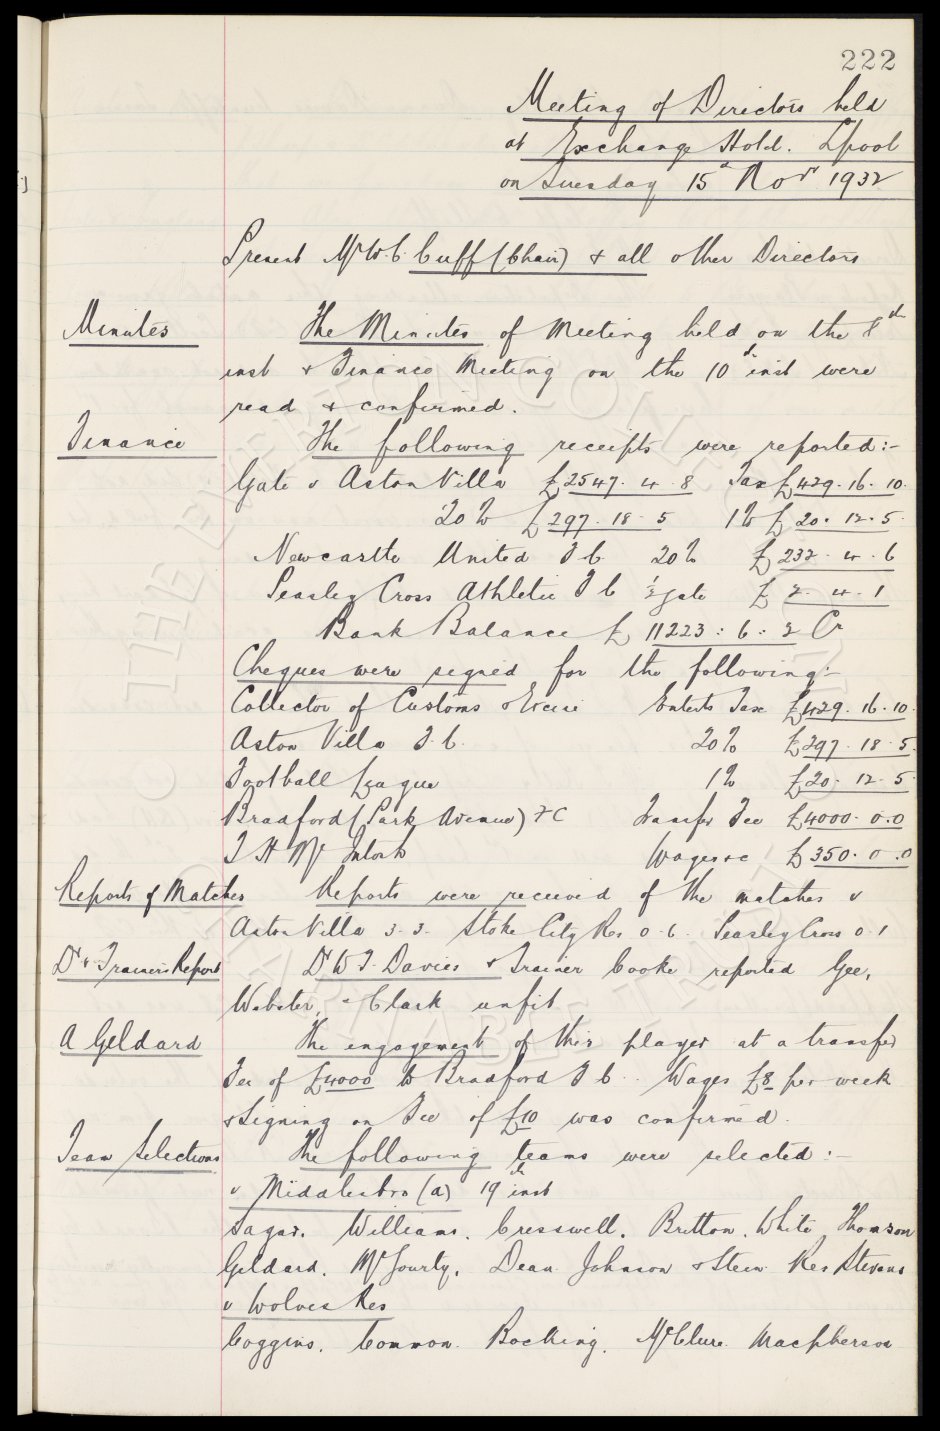 222
Meeting of Directors held
at Exchange Hotel. Lpool
on Tuesday 15th Novr 1932
Present Mr W.C. Cuff (Chair) & all other Directors
Minutes The Minutes of Meeting held on the 8th
inst & Finance Meeting on the 10th inst were
read & confirmed.
Finance The following receipts were reported:-
Gate v Aston Villa £2547. 4. 8 Tax £429. 16. 10.
20% £297. 18. 5 1% £20. 12. 5.
Newcastle United F.C. 20% £232. 4. 6
Seasley Cross Athletic F C ½ gate £2. 4. 1
Bank Balance £11223: 6: 2 Cr
Cheques were signed for the following:-
Collector of Customs & Excise Enterts Tax £429. 16. 10.
Aston Villa F.C. 20% £297. 18. 5.
Football League 1% £20. 12. 5
Bradford (Park Avenue) FC Transfer Fee £4000. 0. 0
T H McIntosh Wages &c £350. 0. 0
Reports of Matches Reports were received of the matches v
Aston Villa 3.3. Stoke City Res 0.6. Seasley Cross 0.1
Dr & Trainers Report Dr W.J. Davies & Trainer Cooke reported Gee,
Webster, & Clark unfit
A Geldard The engagement of this player at a transfer
Fee of £4000 to Bradford F.C. Wages £8 per week
& Signing on Fee of £10 was confirmed.
Team Selections The following teams were selected:-
v Middlesbro (a) 19th inst
Sagar. Williams. Cresswell. Britton. White Thomson
Geldard. McGourty, Dean Johnson & Stein Res Stevens
v Wolves Res
Coggins. Common. Bocking. McClure Macpherson
THE EVERTON COLLECTION
CHARITABLE TRUST